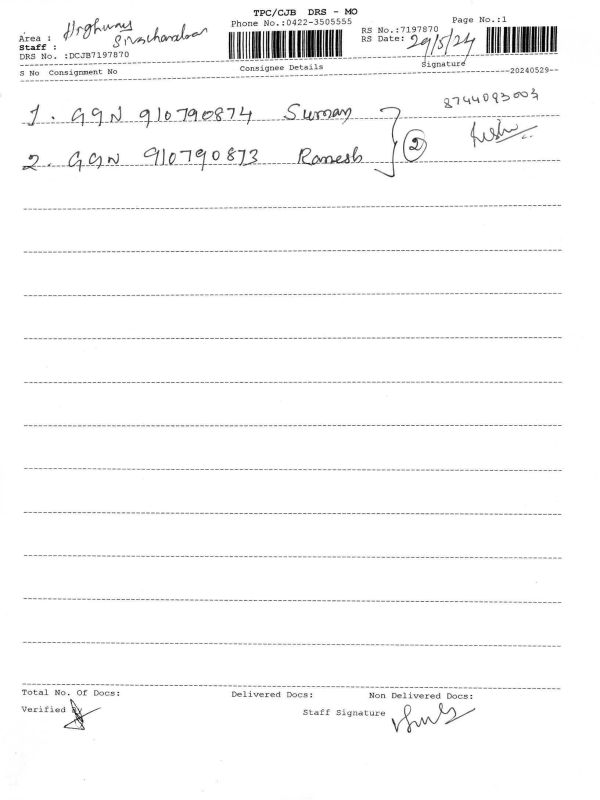 TPC/CJB DRS - MO
Phone No.:0422-3505555
Page No.:1
Area :
RS No.:7197870
Staff :
RS Date: 29/5/24
DRS No. :DCJB7197870
Signature
S No Consignment No Consignee Details --20240529--
1. GGN 910790874 Suman 8744093003
2. GGN 910790873 Ramesh 2
Total No. Of Docs: Delivered Docs: Non Delivered Docs:
Verified By
Staff Signature